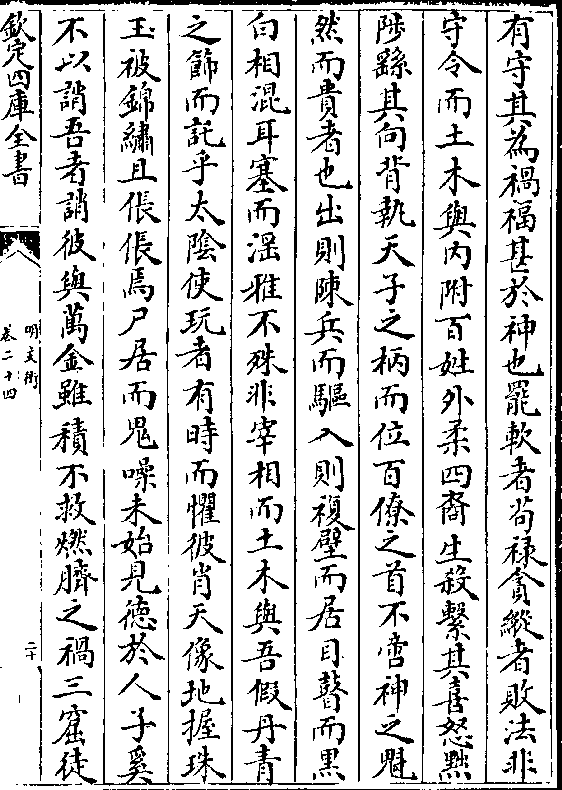 有守其為禍福甚於神也罷軟者茍禄貪縱者敗法非
守令而土木與内附百姓外柔四裔生殺繫其喜怒黜
陟繇其向背執天子之柄而位百僚之首不啻神之魁
然而貴者也出則陳兵而驅入則複壁而居目瞽而黒
白相混耳塞而滛雅不殊非宰相而土木與吾假丹青
之飾而託乎太陰使玩者有時而懼彼肖天像地握珠
玉被錦繡且倀倀焉尸居而鬼噪未始見德於人子奚
不以誚吾者誚彼與萬金雖積不救燃臍之禍三窟徒
欽定四庫全書
明文衡
卷二十四
二十